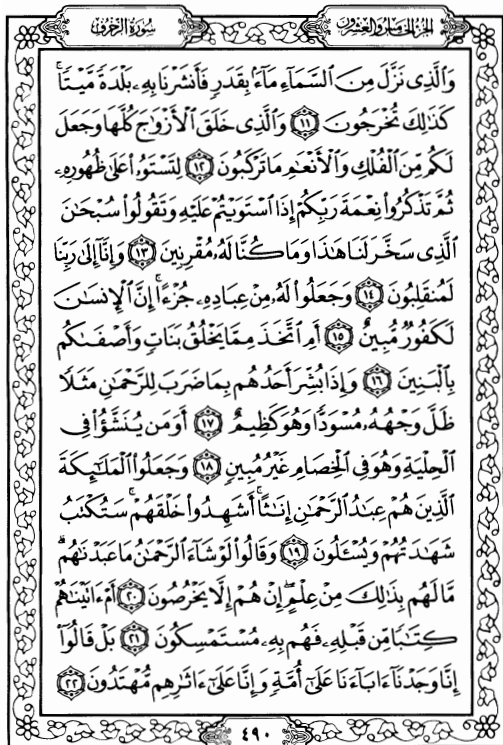 الجزء الخامس والعشرون
سورة الزخرف
وَٱلَّذِى نَزَّلَ مِنَ ٱلسَّمَآءِ مَآءًۢ بِقَدَرٍ فَأَنشَرْنَا بِهِۦ بَلْدَةً مَّيْتًا ۚ
كَذَٰلِكَ تُخْرَجُونَ ١١ وَٱلَّذِى خَلَقَ ٱلْأَزْوَٰجَ كُلَّهَا وَجَعَلَ
لَكُم مِّنَ ٱلْفُلْكِ وَٱلْأَنْعَٰمِ مَا تَرْكَبُونَ ١٢ لِتَسْتَوُۥا۟ عَلَىٰ ظُهُورِهِۦ
ثُمَّ تَذْكُرُوا۟ نِعْمَةَ رَبِّكُمْ إِذَا ٱسْتَوَيْتُمْ عَلَيْهِ وَتَقُولُوا۟ سُبْحَٰنَ
ٱلَّذِى سَخَّرَ لَنَا هَٰذَا وَمَا كُنَّا لَهُۥ مُقْرِنِينَ ١٣ وَإِنَّآ إِلَىٰ رَبِّنَا
لَمُنقَلِبُونَ ١٤ وَجَعَلُوا۟ لَهُۥ مِنْ عِبَادِهِۦ جُزْءًا ۚ إِنَّ ٱلْإِنسَٰنَ
لَكَفُورٌ مُّبِينٌ ١٥ أَمِ ٱتَّخَذَ مِمَّا يَخْلُقُ بَنَاتٍ وَأَصْفَىٰكُم
بِٱلْبَنِينَ ١٦ وَإِذَا بُشِّرَ أَحَدُهُم بِمَا ضَرَبَ لِلرَّحْمَٰنِ مَثَلًا
ظَلَّ وَجْهُهُۥ مُسْوَدًّا وَهُوَ كَظِيمٌ ١٧ أَوَمَن يُنَشَّؤُا۟ فِى
ٱلْحِلْيَةِ وَهُوَ فِى ٱلْخِصَامِ غَيْرُ مُبِينٍ ١٨ وَجَعَلُوا۟ ٱلْمَلَٰٓئِكَةَ
ٱلَّذِينَ هُمْ عِبَٰدُ ٱلرَّحْمَٰنِ إِنَٰثًا ۚ أَشَهِدُوا۟ خَلْقَهُمْ ۚ سَتُكْتَبُ
شَهَٰدَتُهُمْ وَيُسْـَٔلُونَ ١٩ وَقَالُوا۟ لَوْ شَآءَ ٱلرَّحْمَٰنُ مَا عَبَدْنَٰهُم ۗ
مَّا لَهُم بِذَٰلِكَ مِنْ عِلْمٍ ۖ إِنْ هُمْ إِلَّا يَخْرُصُونَ ٢٠ أَمْ ءَاتَيْنَٰهُمْ
كِتَٰبًا مِّن قَبْلِهِۦ فَهُم بِهِۦ مُسْتَمْسِكُونَ ٢١ بَلْ قَالُوٓا۟
إِنَّا وَجَدْنَآ ءَابَآءَنَا عَلَىٰٓ أُمَّةٍ وَإِنَّا عَلَىٰٓ ءَاثَٰرِهِم مُّهْتَدُونَ ٢٢
٤٩٠